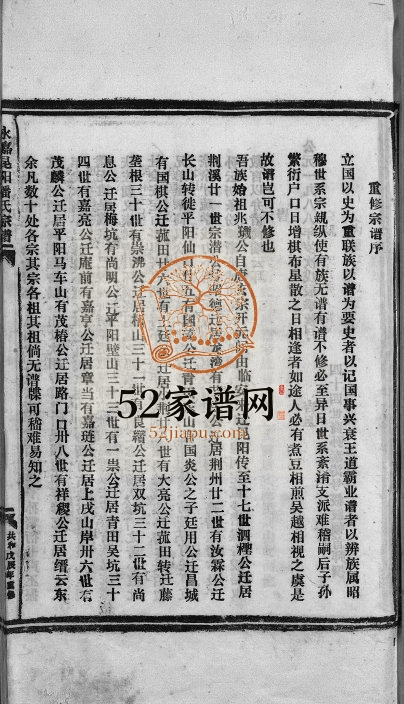 重修宗谱序
立国以史为重联族以谱为要史者以记国事兴衰王道霸业谱者以辨族属昭
穆世系宗规纵使有族无谱有谱不修必至异日世系紊淆支派难稽嗣后子孙
繁衍户口日增棋布星散之日相逢者如途人必有煮豆相煎吴越相视之虞是
故谱岂可不修也
吾族始祖兆 公自唐 宗开元 由临安 迁昆阳传至十七世泗 公迁居
荆溪廿一世宗潜 德迁居 湾有 公迁居荆州廿二世有汝霖公迁
长山转徙平阳仙口廿五有国 公迁青 山 国炎公之子廷用公迁昌城
有国棋公迁菰田廿六世有 廷 迁居荆 世有大亮公迁菰田转迁藤
垄根三十世有崇沸公迁居横山三十一世 良 公迁居双坑三十二世有尚
息公迁居梅坑有尚明公迁平阳壁山三十三世有一崇公迁居青田吴坑三十
四世有嘉亮公迁庵前有嘉亨公迁居章当有嘉琏公迁居上戌山岸卅六世有
茂麟公迁居平阳马车山有茂椿公迁居路门口卅八世有祥稷公迁居缙云东
余凡数十处各宗其宗各祖其祖倘无谱牒可稽难易知之
永嘉昆阳潘氏宗谱
共和戊辰年重修
52家谱网
52jiapu.com